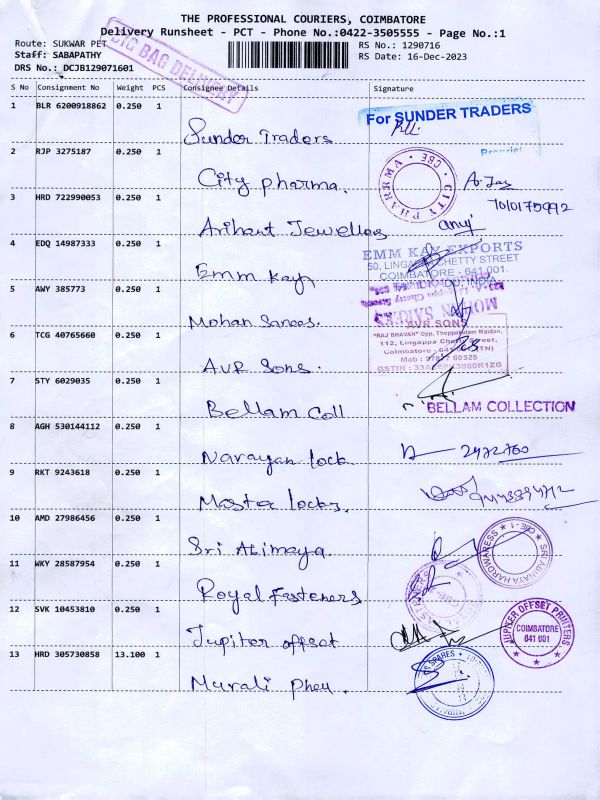 THE PROFESSIONAL COURIERS, COIMBATORE
Delivery Runsheet - PCT - Phone No.:0422-3505555 - Page No.:1
Route: SUKWAR PET
RS No.: 1290716
Staff: SABAPATHY
RS Date: 16-Dec-2023
DRS No.: DCJB129071601
BIG BAG DELIVERY
S No Consignment No Weight PCS Consignee Details Signature
1 BLR 6200918862 0.250 1
For SUNDER TRADERS
Sunder Traders
2 RJP 3275187 0.250 1
City pharma.
CITY PHARRMA ★ CBE ★
3 HRD 722990053 0.250 1
Arihant Jewellers
4 EDQ 14987333 0.250 1
EMM KAY EXPORTS
50, LINGAPPA CHETTY STREET
COIMBATORE - 641 001.
INDIA
Emm Kay
5 AWY 385773 0.250 1
Mohan
6 TCG 40765660 0.250 1
AVR SONS
"RAJ BHAVAN" Opp, Theppakulam Maidan,
112, Lingappa Chetty Street,
Coimbatore - (TN)
AVR Sons.
7 STY 6029035 0.250 1
Bellam Coll
BELLAM COLLECTION
8 AGH 530144112 0.250 1
Narayan lock
9 RKT 9243618 0.250 1
Master locks.
10 AMD 27986456 0.250 1
Sri Abinaya.
SRI ABINAYA HARDWARESS ★ CBE-1 ★
11 WKY 28587954 0.250 1
Royal Fasteners
12 SVK 10453810 0.250 1
Jupiter offset
JUPITER OFFSET PRINTERS
COIMBATORE
641 001
13 HRD 305730858 13.100 1
Murali